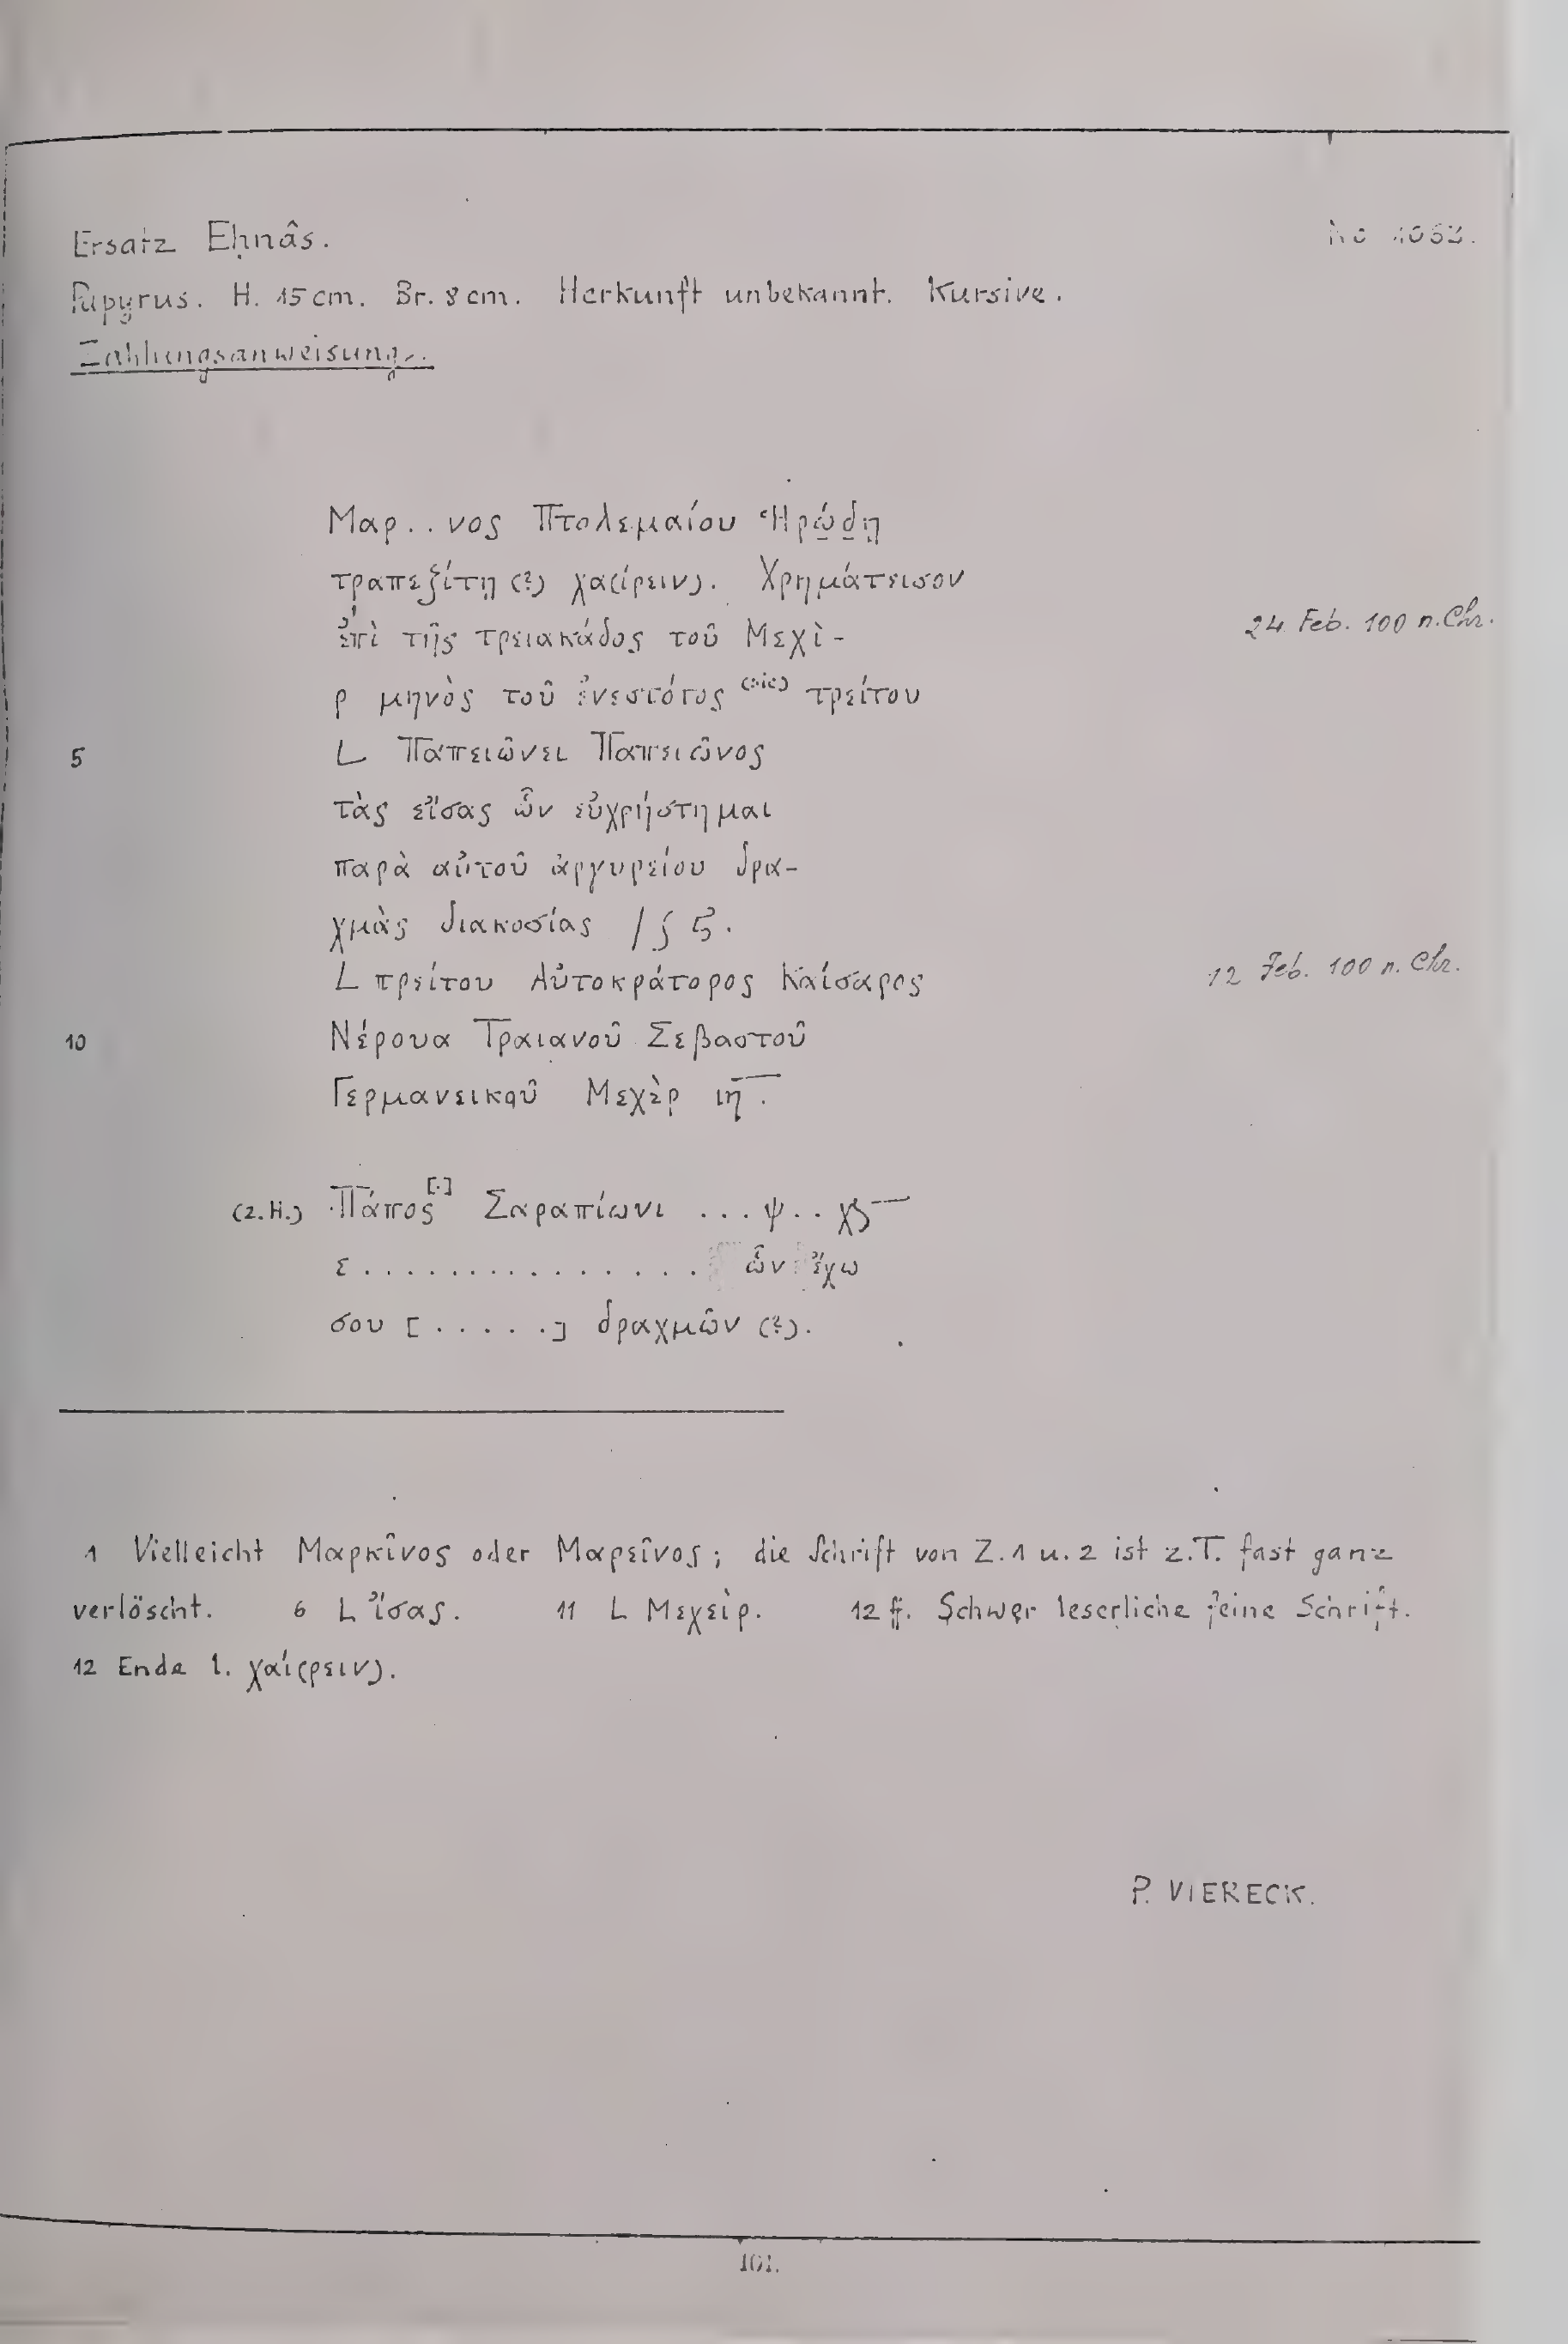 Ersatz Eḥnâs.
No 1063.
Papyrus. H. 15 cm. Br. 8 cm. Herkunft unbekannt. Kursive.
Zahlungsanweisung.
Μαρ..νος Πτολεμαίου Ἡρώ̣δ̣ῃ
τραπεζίτῃ (?) χα(ίρειν). Χρημάτεισον
ἐπὶ τῆς τρειακάδος τοῦ Μεχὶ-
24 Feb. 100 n. Chr.
ρ μηνὸς τοῦ ἐνεστότος (sic) τρείτου
5 L Παπειῶνει Παπειῶνος
τὰς εἴσας ὧν εὐχρήστημαι
παρὰ αὐτοῦ ἀργυρείου δρα-
χμὰς διακοσίας /
L τρείτου Αὐτοκράτορος Καίσαρος
12 Feb. 100 n. Chr.
10 Νέρουα Τραιανοῦ Σεβαστοῦ
Γερμανεικοῦ Μεχὲρ ιη̅.
(2. H.) Πάπος[.] Σαραπίωνι ...ψ..
ε............... ὧν ἔχω
σου [......] δραχμῶν (?).
1 Vielleicht Μαρκῖνος oder Μαρεῖνος; die Schrift von Z. 1 u. 2 ist z.T. fast ganz
verlöscht. 6 L ἴσας. 11 L Μεχείρ. 12 ff. Schwer leserliche feine Schrift.
12 Ende l. χαί(ρειν).
P. VIERECK.
101.